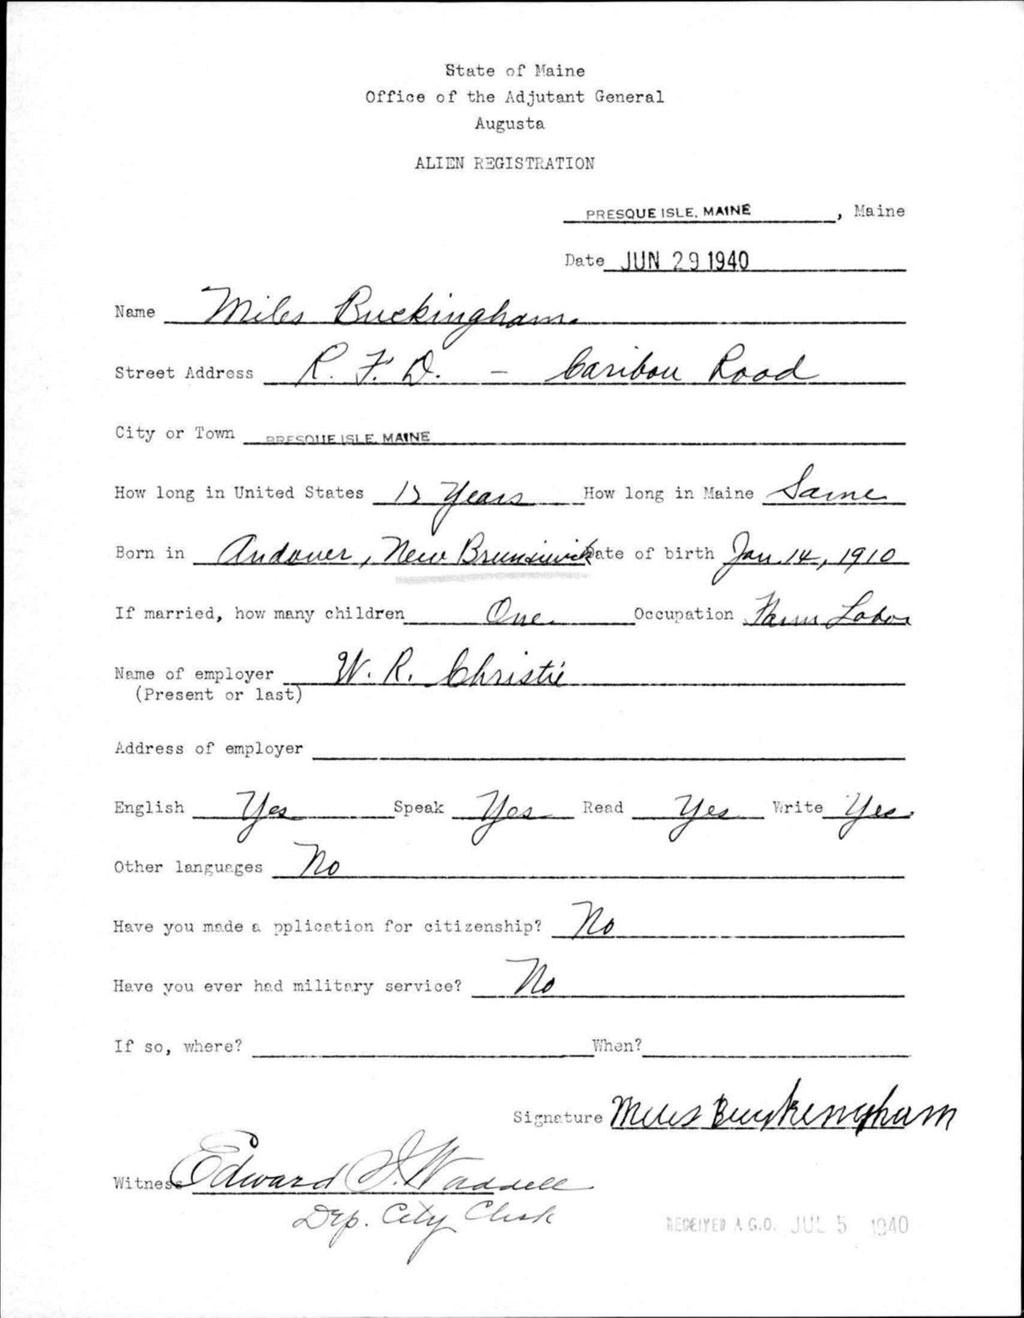 State of Maine
Office of the Adjutant General
Augusta
ALIEN REGISTRATION
PRESQUE ISLE, MAINE, Maine
Date JUN 29 1940
Name Miles Buckingham.
Street Address R. F. D. - Caribou Road
City or Town PRESQUE ISLE, MAINE
How long in United States Years How long in Maine Same
Born in Andover, New Brunswick Date of birth Jan. 14, 1910
If married, how many children One. Occupation Farm Labor
Name of employer W. R. Christie
(Present or last)
Address of employer
English Yes Speak Yes Read Yes Write Yes.
Other languages No
Have you made a pplication for citizenship? No
Have you ever had military service? No
If so, where? When?
Signature Miles Buckingham
Witness Edward Waddell
Dep. City Clerk
RECEIVED A.G.O. JUL 5 1940